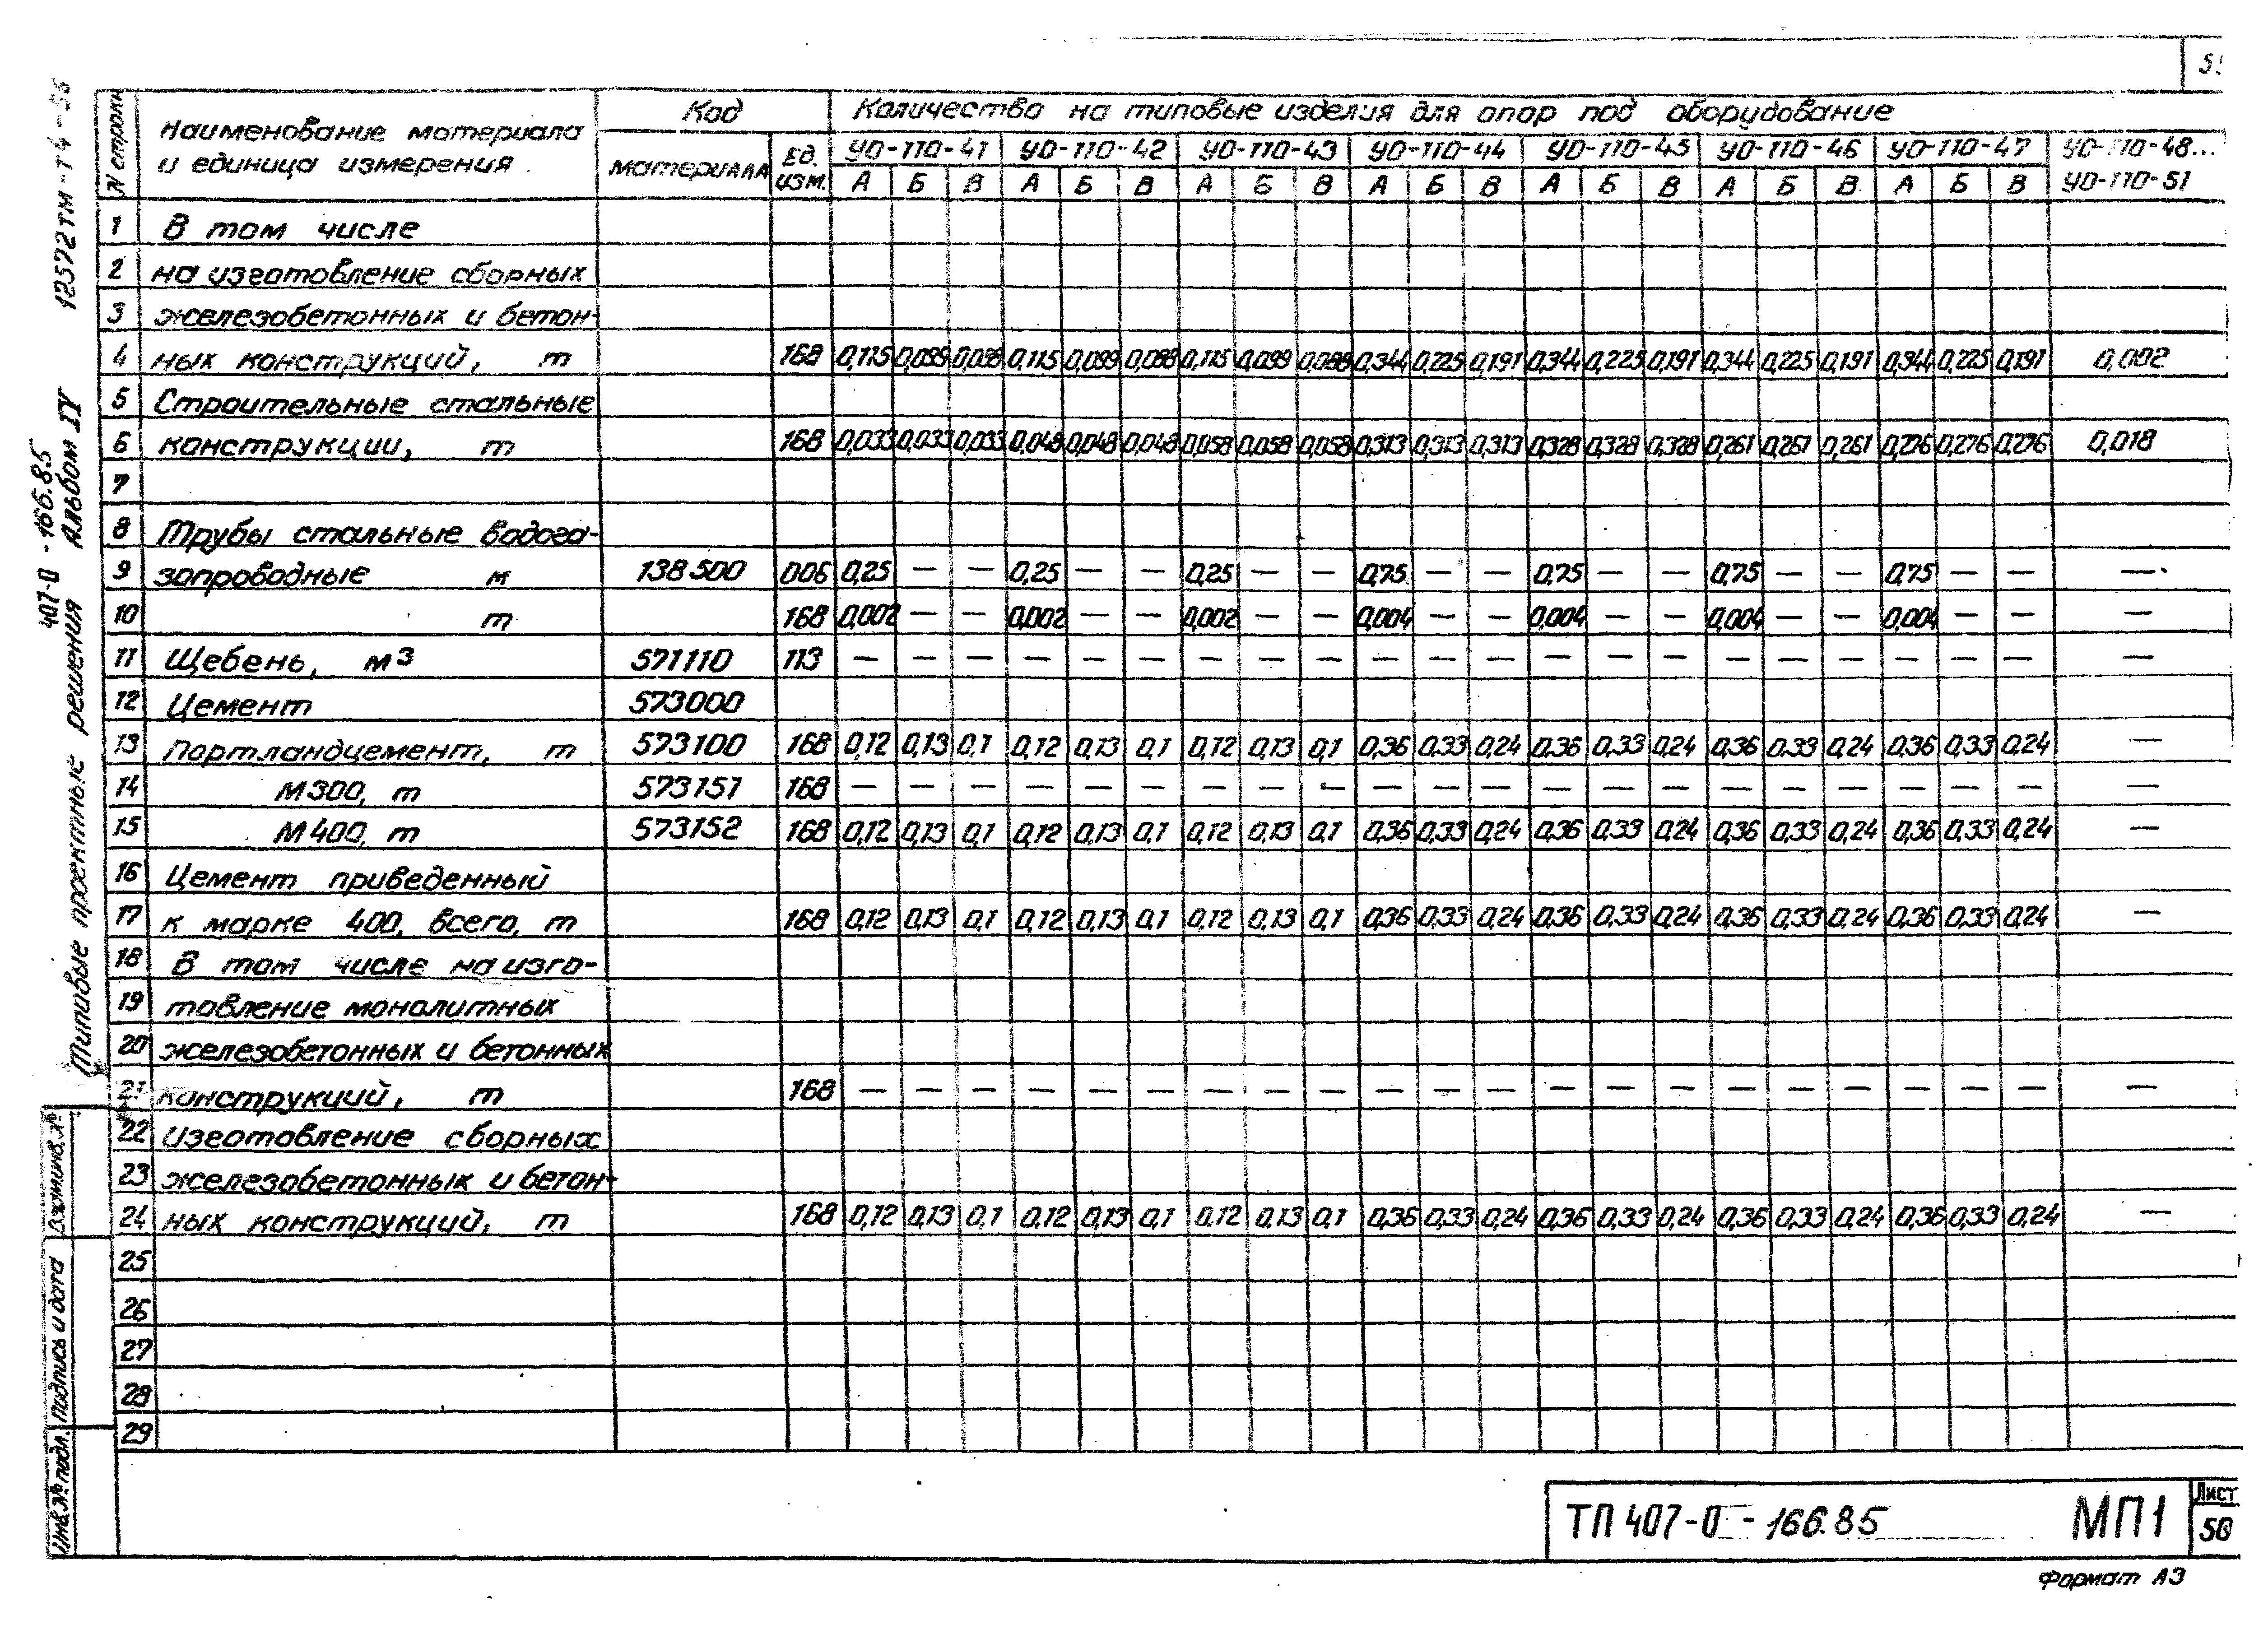 N строки Наименование материала и единица измерения Код Количество на типовые изделия для опор под оборудование
материала Ед. изм. УО-110-41 УО-110-42 УО-110-43 УО-110-44 УО-110-45 УО-110-46 УО-110-47 УО-110-48... УО-110-51
А Б В А Б В А Б В А Б В А Б В А Б В А Б В
1 В том числе
2 на изготовление сборных
3 железобетонных и бетон-
4 ных конструкций, т 168 0,115 0,099 0,088 0,115 0,099 0,088 0,115 0,099 0,088 0,344 0,225 0,191 0,344 0,225 0,191 0,344 0,225 0,191 0,344 0,225 0,191 0,002
5 Строительные стальные
6 конструкции, т 168 0,033 0,033 0,033 0,048 0,048 0,048 0,058 0,058 0,058 0,313 0,313 0,313 0,328 0,328 0,328 0,261 0,261 0,261 0,276 0,276 0,276 0,018
7
8 Трубы стальные водога-
9 запроводные м 138500 006 0,25 — — 0,25 — — 0,25 — — 0,75 — — 0,75 — — 0,75 — — 0,75 — — —
10 т 168 0,002 — — 0,002 — — 0,002 — — 0,004 — — 0,004 — — 0,004 — — 0,004 — — —
11 Щебень, м3 571110 113 — — — — — — — — — — — — — — — — — — — — — —
12 Цемент 573000
13 Портландцемент, т 573100 168 0,12 0,13 0,1 0,12 0,13 0,1 0,12 0,13 0,1 0,36 0,33 0,24 0,36 0,33 0,24 0,36 0,33 0,24 0,36 0,33 0,24 —
14 М300, т 573151 168 — — — — — — — — — — — — — — — — — — — — — —
15 М400, т 573152 168 0,12 0,13 0,1 0,12 0,13 0,1 0,12 0,13 0,1 0,36 0,33 0,24 0,36 0,33 0,24 0,36 0,33 0,24 0,36 0,33 0,24 —
16 Цемент приведенный
17 к марке 400, всего, т 168 0,12 0,13 0,1 0,12 0,13 0,1 0,12 0,13 0,1 0,36 0,33 0,24 0,36 0,33 0,24 0,36 0,33 0,24 0,36 0,33 0,24 —
18 В том числе на изго-
19 товление монолитных
20 железобетонных и бетонных
21 конструкций, т 168 — — — — — — — — — — — — — — — — — — — — — —
22 Изготовление сборных
23 железобетонных и бетон-
24 ных конструкций, т 168 0,12 0,13 0,1 0,12 0,13 0,1 0,12 0,13 0,1 0,36 0,33 0,24 0,36 0,33 0,24 0,36 0,33 0,24 0,36 0,33 0,24 —
25
26
27
28
29
407-0-166.85
Типовые проектные решения Альбом IV 12572тм-т4-
Взам.инв.№
Подпись и дата
Инв.№ подл.
ТП 407-0-166.85 МП1
Лист
50
Формат А3